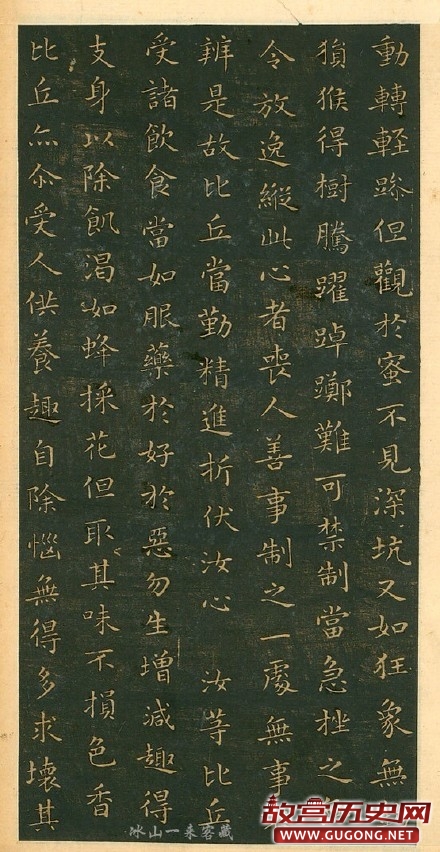 動轉輕躁但觀於蜜不見深坑又如狂象無
猨猴得樹騰躍踔躑難可禁制當急挫之
令放逸縱此心者喪人善事制之一處無事
辨是故比丘當勤精進折伏汝心 汝等比丘
受諸飲食當如服藥於好於惡勿生增減趣得
支身以除飢渴如蜂採花但取其味不損色香
比丘亦尒受人供養趣自除惱無得多求壞其
冰山一来客藏
故宫历史网
WWW.GUGONG.NET